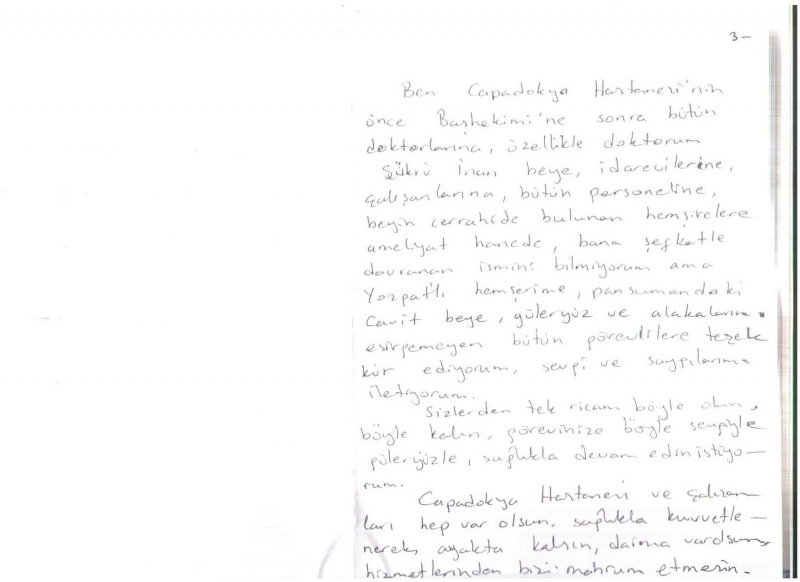 3-
Ben Capadokya Hastanesi'nin
önce Başhekimi'ne sonra bütün
doktorlarına, özellikle doktorum
Şükrü İnan beye, idarecilerine,
çalışanlarına, bütün personeline,
beyin cerrahide bulunan hemşirelere
ameliyat hanede, bana şefkatle
davranan ismini bilmiyorum ama
Yozgatlı hemşerime, pansumandaki
Cavit beye, güleryüz ve alakalarını
esirgemeyen bütün görevlilere teşek
kür ediyorum, sevgi ve saygılarımı
iletiyorum.
Sizlerden tek ricam böyle olun,
böyle kalın, görevinize böyle sevgiyle
güleryüzle, sağlıkla devam edin istiyo-
rum.
Capadokya Hastanesi ve çalışan
ları hep var olsun, sağlıkla kuvvetle-
nerek ayakta kalsın, daima
hizmetlerinden bizi mahrum etmesin.